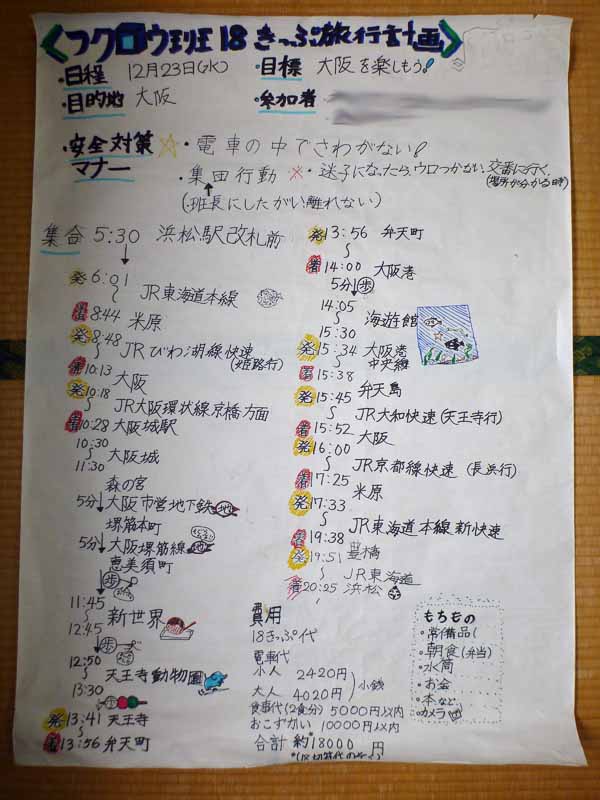 フクロウ班18きっぷ旅行計画
・日程 12月23日(水) ・目標 大阪を楽しもう!
・目的地 大阪 ・参加者
・安全対策 ☆・電車の中でさわがない!
マナー ・集団行動 ※・迷子になったら、ウロつかない、交番に行く、
(場所が分かる時)
(班長にしたがい離れない)
集合 5:30 浜松駅改札前
発6:01
〜 JR東海道本線
着8:44 米原
発8:48
〜 JRびわ湖線快速
(姫路行)
着10:13 大阪
発10:18
〜 JR大阪環状線京橋方面
着10:28 大阪城駅
10:30
〜 大阪城
11:30
森の宮
5分↓大阪市営地下鉄
堺筋本町
5分↓大阪堺筋線
恵美須町
↓歩
11:45
〜 新世界
12:45
↓歩
12:50
〜 天王寺動物園
13:30
発13:41 天王寺
〜
着13:56 弁天町
発13:56 弁天町
〜
着14:00 大阪港
5分↓歩
14:05
〜 海遊館
15:30
発15:34 大阪港
〜 中央線
着15:38
発15:45 弁天島
〜 JR大和快速(天王寺行)
着15:52 大阪
発16:00
〜 JR京都線快速 (長浜行)
着17:25 米原
発17:33
〜 JR東海道本線新快速
着19:38
発19:51 豊橋
〜 JR東海道
着20:25 浜松
費用
18きっぷ代
電車代
小人 2420円
大人 4020円 小銭
食事代(2食分) 5000円以内
おこずかい 10000円以内
合計 約18000円
もちもの
・常備品(
・朝食(弁当)
・水筒
・お金
・本など
・カメラ